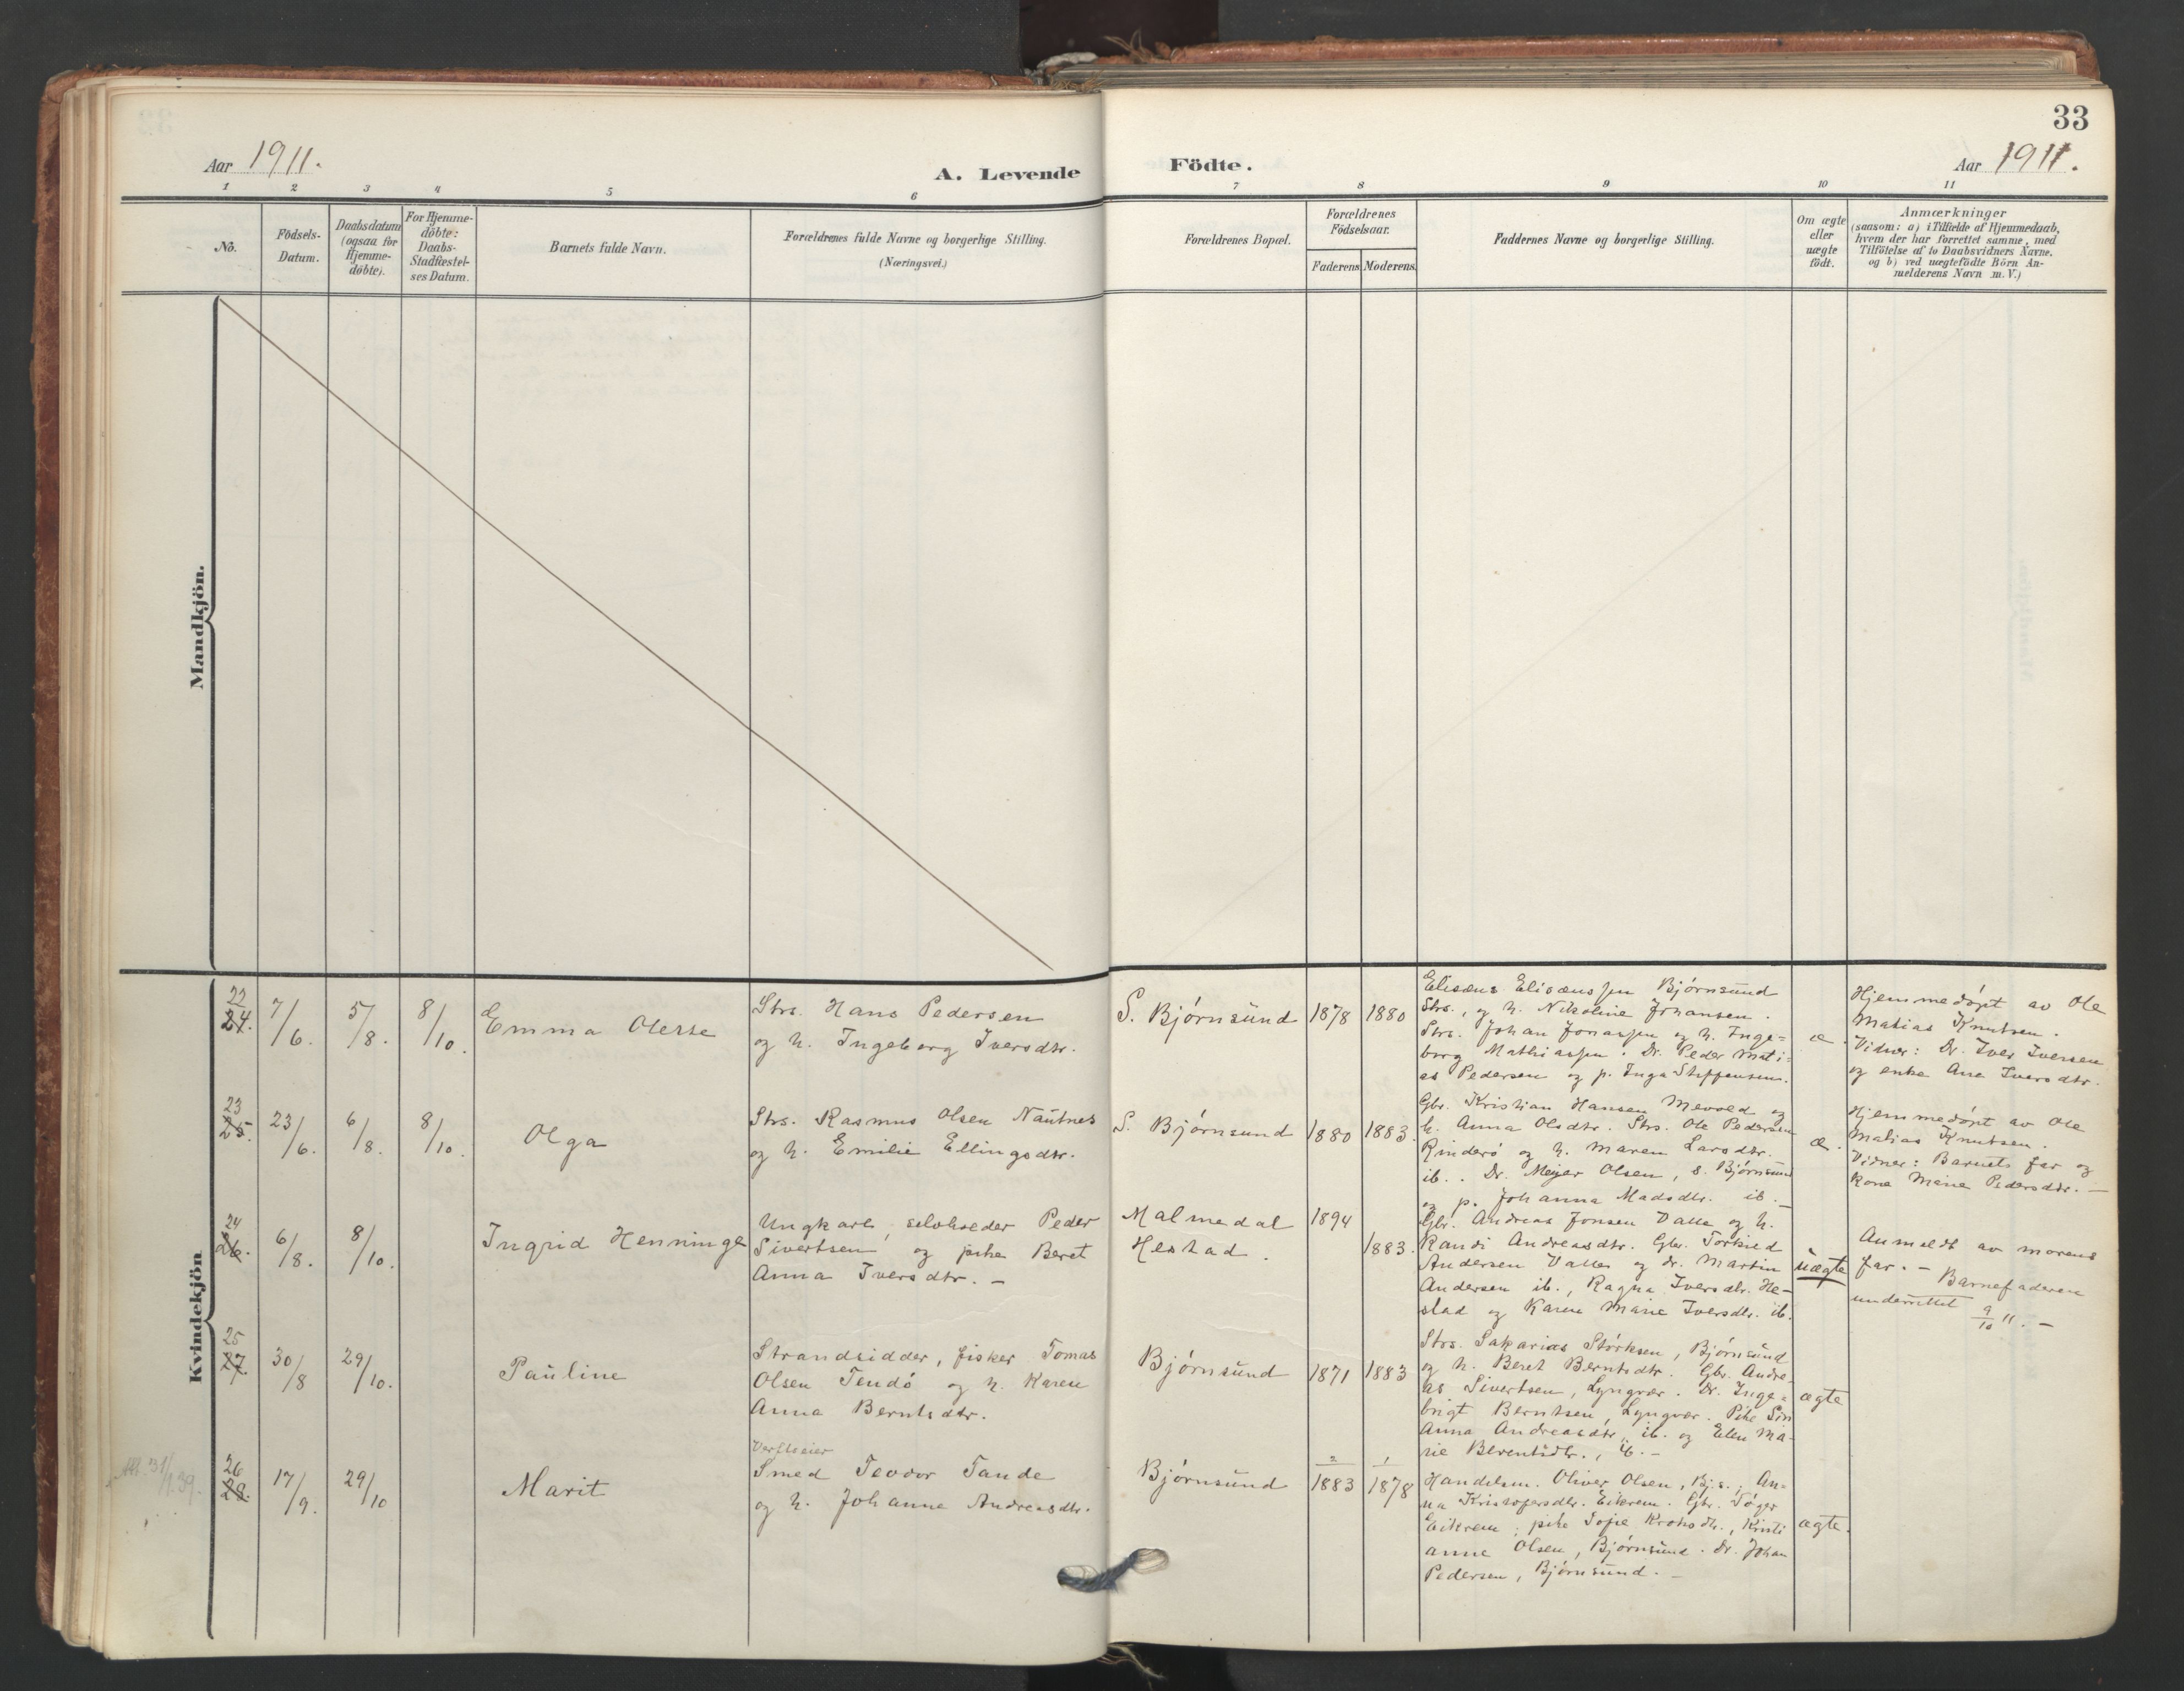 33
Aar 1911.
A. Levende
Födte.
Aar 1911.
1 2 3 4 5 6 7 8 9 10 11
No.
Födsels-
Datum.
Daabsdatum
(ogsaa for
Hjemme-
döbte).
For Hjemme-
döbte:
Daabs-
Stadfæstel-
ses Datum.
Barnets fulde Navn.
Forældrenes fulde Navne og borgerlige Stilling.
(Næringsvei.)
Forældrenes Bopæl.
Forældrenes
Födselsaar.
Faderens. Moderens.
Faddernes Navne og borgerlige Stilling.
Om ægte
eller
uægte
födt.
Anmærkninger
(saasom: a) i Tilfælde af Hjemmedaab,
hvem der har forrettet samme, med
Tilföielse af to Daabsvidners Navne.
og b) ved uægtefödte Börn An-
melderens Navn m. V.)
Mandkjön.
Kvindekjön
22
24.
7/6.
5/8.
8/10.
Emma Olerse
Strs. Hans Pedersen
og h. Ingeborg Iversdtr.
S. Bjørnsund
1878
1880
Elisæus Elisæussen Bjørnsund
Strs., og h. Nikoline Johansen.
Strs. Johan Jonassen og h. Inge-
borg Mathiassen. Dr. Peder Mati-
as Pedersen og p. Inga Steffensen.
æ.
Hjemmedøpt av Ole
Matias Knutsen.
Vidner: Dr. Iver Iversen
og enke Ane Iversdtr.
23
25.
23/6.
6/8.
8/10.
Olga
Strs. Rasmus Olsen Nautnes
og h. Emilie Ellingsdtr.
S. Bjørnsund
1880
1883.
Gbr. Kristian Hansen Mevold og
h. Anna Olsdtr. Strs. Ole Pedersen
Rinderø og h. Maren Larsdtr.
ib.. Dr. Meyer Olsen, S. Bjørnsund
og p. Johanna Madsdtr. ib.-
æ.
Hjemmedøpt av Ole
Matias Knutsen.
Vidner: Barnets far og
kone Marie Pedersdtr. -
24
26.
6/8.
8/10.
Ingrid Henninge
Ungkarl, selvhseder Peder
Sivertsen og pike Beret
Anna Iversdtr. -
Malmedal
Hestad.
1894
1883.
Gbr. Andreas Jonsen Valle og h.
Randi Andreasdtr. Gbr. Torkild
Andersen Valle og dr. Martin
Andersen ib., Ragna Iversdtr. He-
stad og Karen Marie Iversdtr. ib.
uægte
Anmeldt av morens
far. - Barnefaderen
underrettet 9/10 11. -
25
27.
30/8
29/10.
Pauline
Strandsidder, fisker Tomas
Olsen Tendø og h. Karen
Anna Berntsdtr.
Bjørnsund
1871
1883
Strs. Sakarias Størksen, Bjørnsund
og h. Beret Berntsdtr. Gbr. Andre-
as Sivertsen, Lyngvær. Dr. Inge-
brigt Berntsen, Lyngvær. Pike
Anna Andreasdtr. ib. og Elen Ma-
rie Berentsdtr., ib. -
ægte
31/1.39.
26
28.
17/9.
29/10
Marit
Verftseier
Smed Teodor Tande
og h. Johanna Andreasdtr.
Bjørnsund
2
1883
1
1878
Handelsm. Oliver Olsen, Bj.s., An-
na Kristofersdtr. Eikrem. Gbr. Tøger
Eikrem, pike Sofie Krohsdtr., Kristi
anne Olsen, Bjørnsund. Dr. Johan
Pedersen, Bjørnsund. -
ægte.